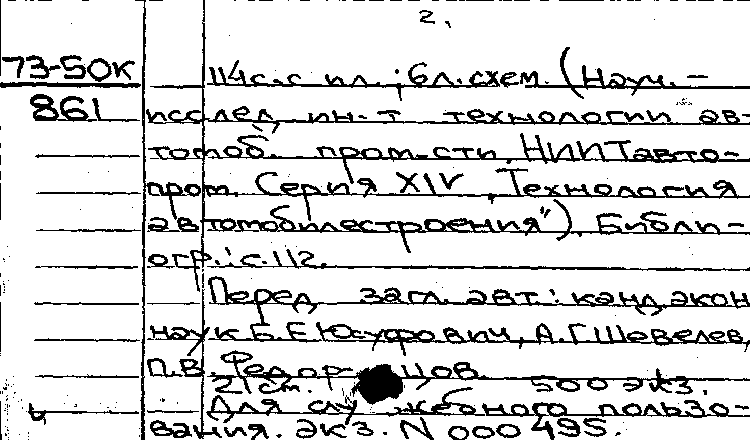 2.
73-50К
861
114с. с ил.; 6л.схем. (Науч.-
исслед. ин-т технологии ав-
томоб. пром-сти. НИИТавто-
пром. Серия XIV „Технология
автомобилестроения"). Библи-
огр.: с.112.
Перед загл. авт.: канд. экон
наук Б.Е Юсуфович, А.Г Шевелев,
П.В. Федор цов.
21см. 500 экз.
Для слу жебного пользо-
вания. Экз. N 000495.